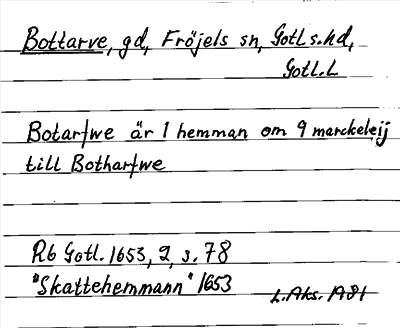 Bottarve, gd, Fröjels sn, Gotl s. hd,
Gotl. L
Botarfwe är 1 hemman om 9 marckeleij
till Botharfwe
Rb Gotl. 1653, 2, s. 78
"Skattehemmann" 1653
L. Aks. 1981